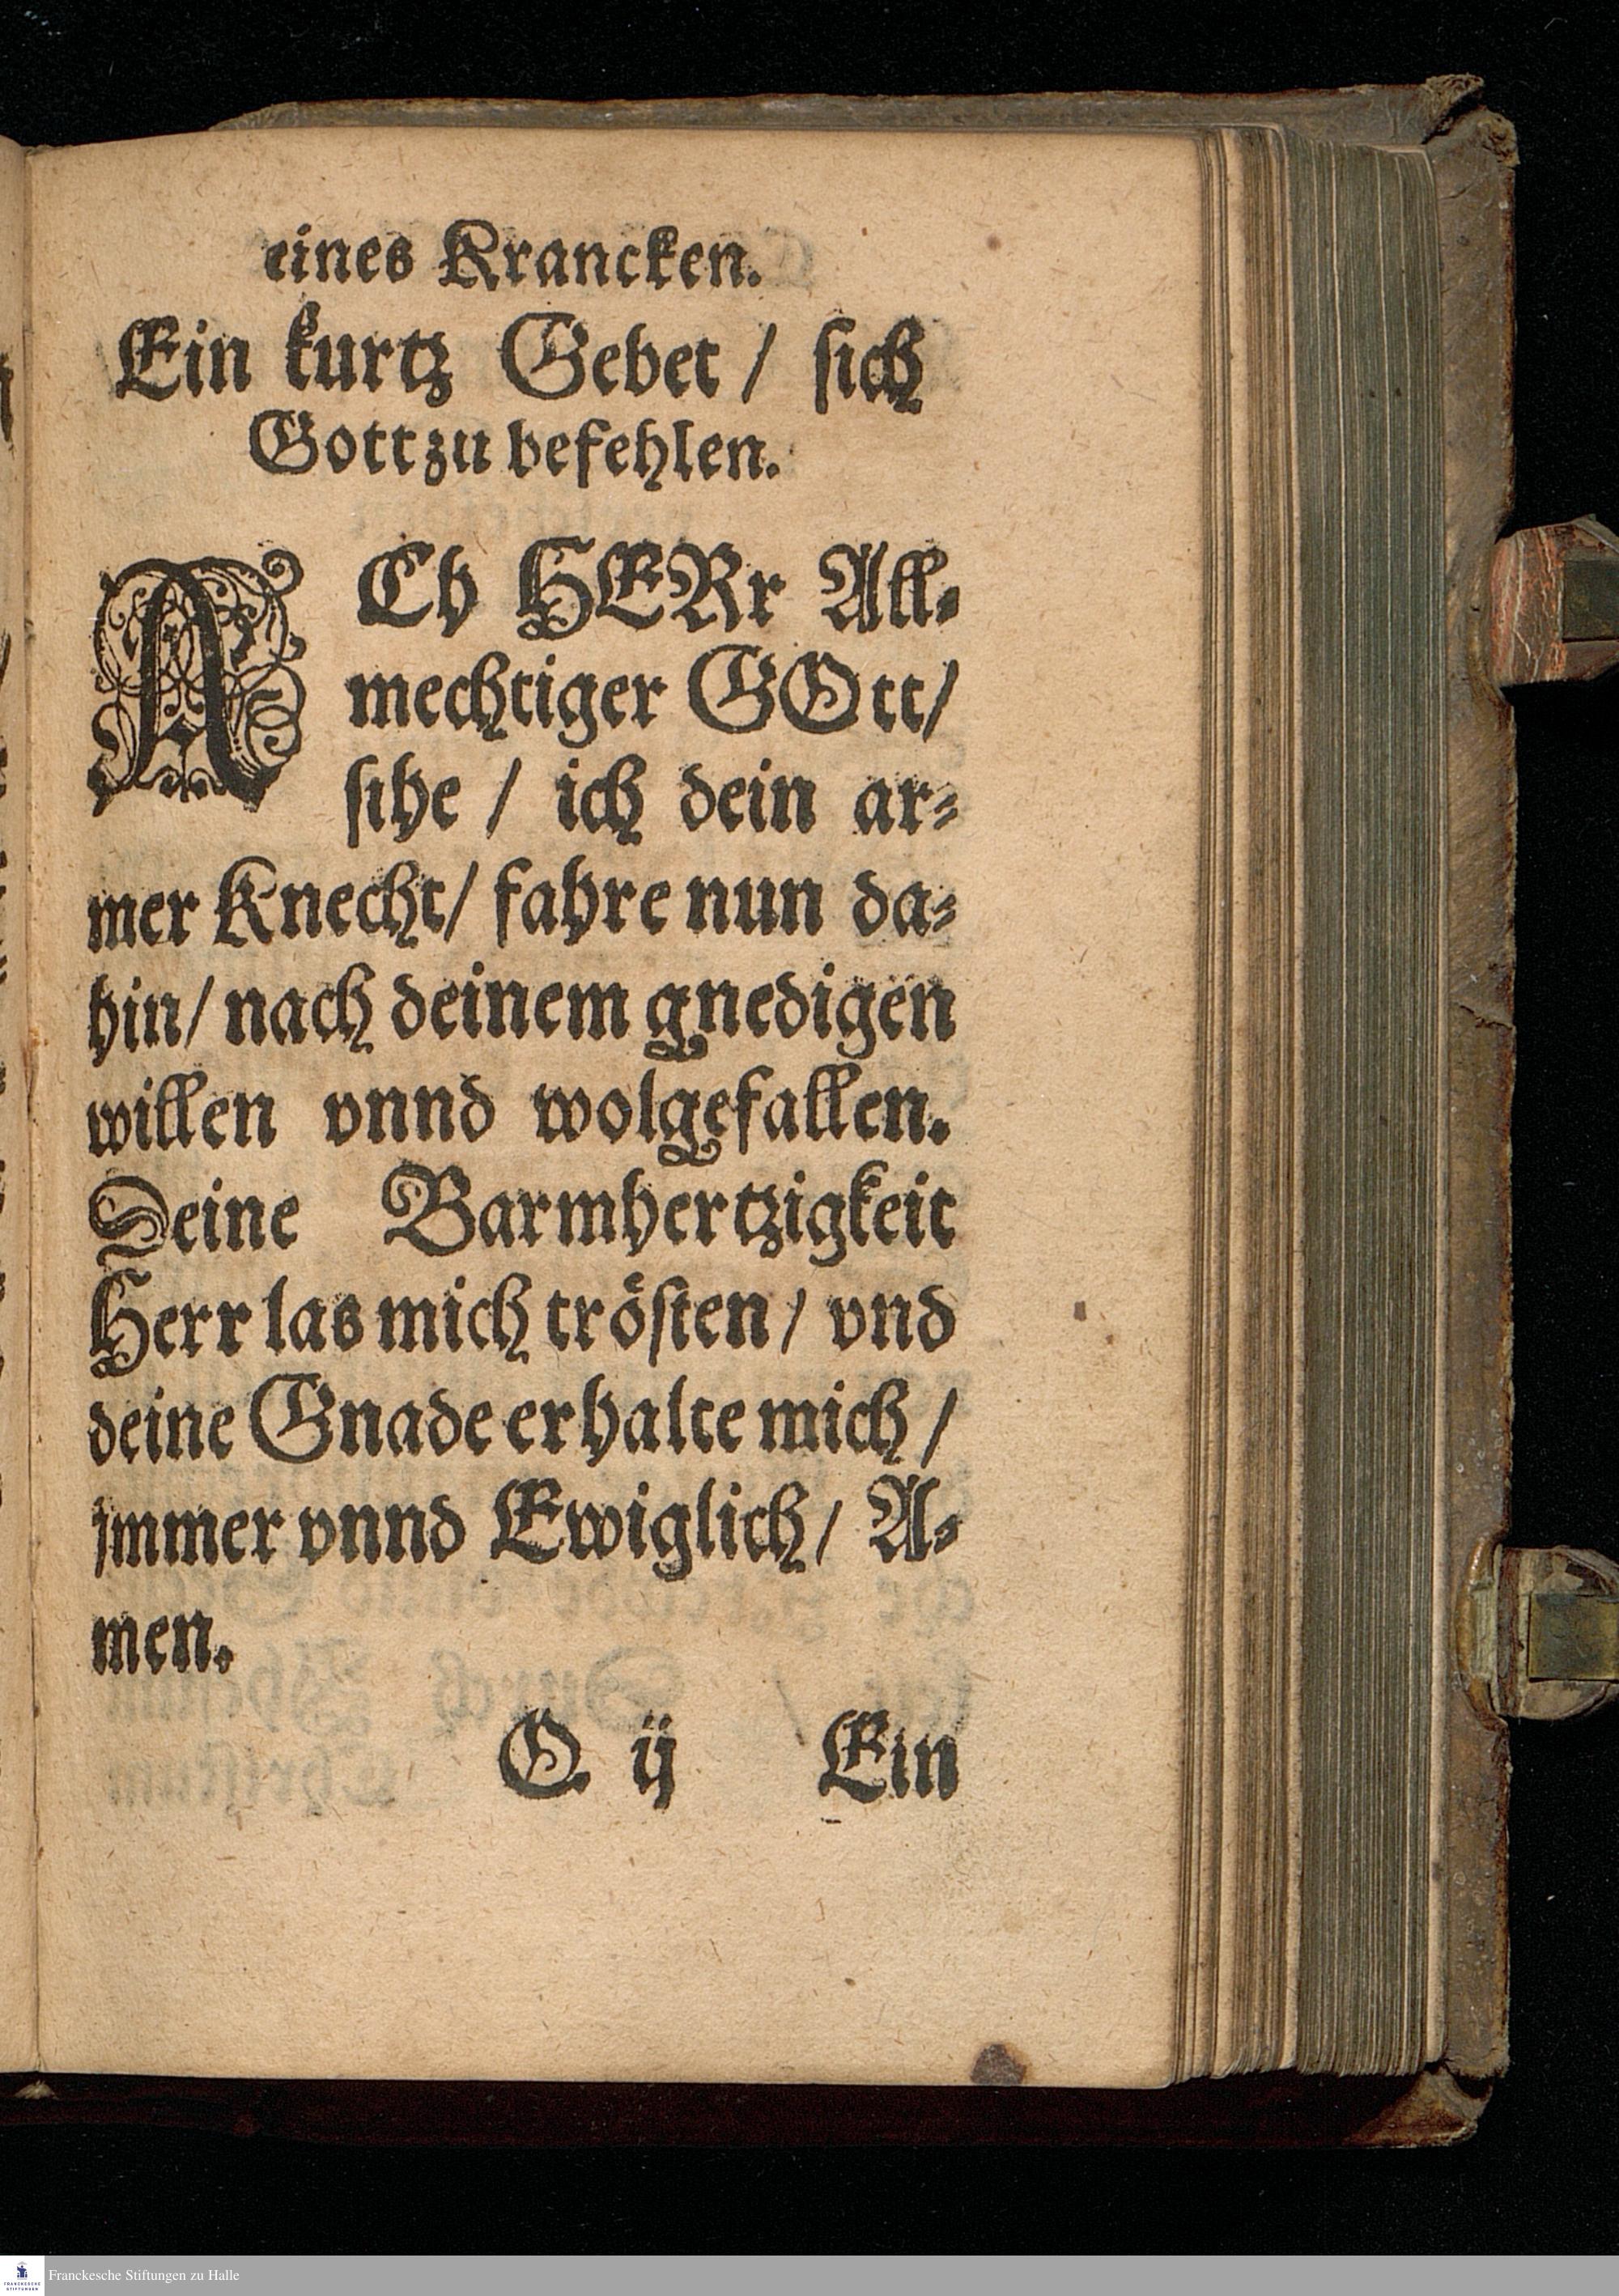 eines Krancken.
Ein kurtz Gebet / sich
Gott zu befehlen.
ACh HERr All-
mechtiger GOtt/
sihe / ich dein ar-
mer Knecht/ fahre nun da-
hin/ nach deinem gnedigen
willen vnnd wolgefallen.
Deine Barmhertzigkeit
Herr las mich trösten/ vnd
deine Gnade erhalte mich /
jmmer vnnd Ewiglich/ A-
men.
O ij Ein
Franckesche Stiftungen zu Halle